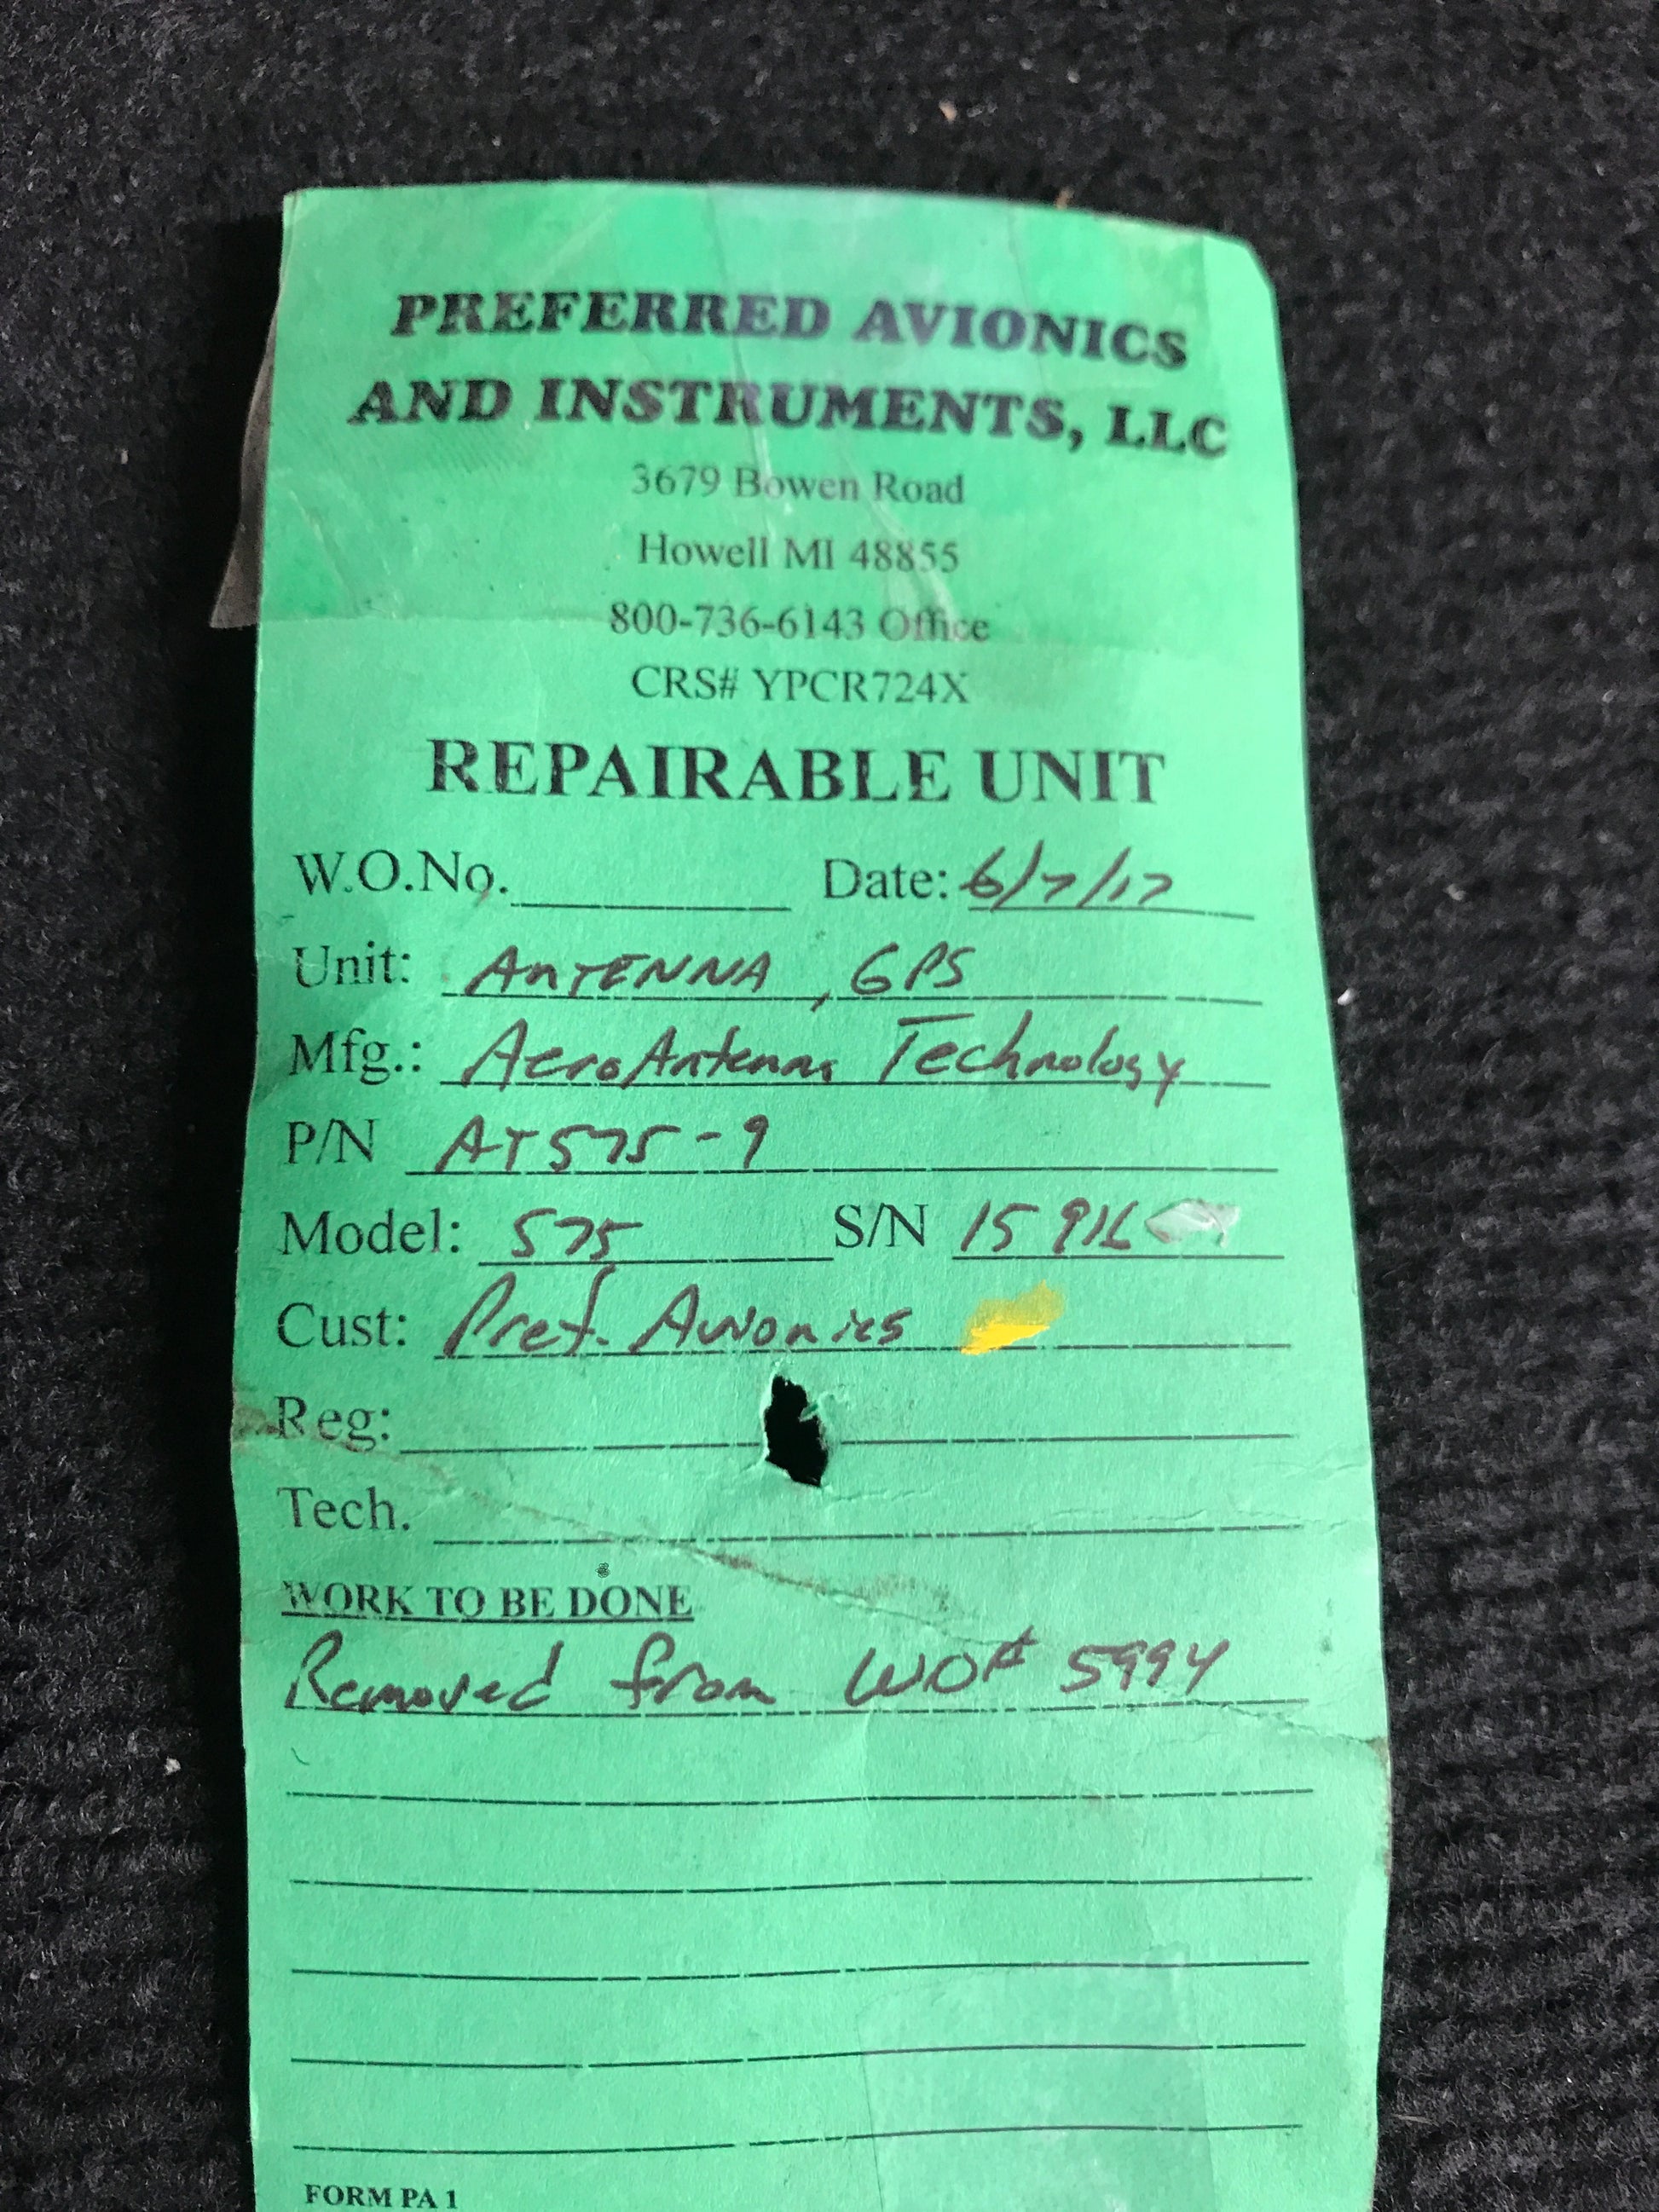 PREFERRED AVIONICS
AND INSTRUMENTS, LLC
3679 Bowen Road
Howell MI 48855
800-736-6143 Office
CRS# YPCR724X
REPAIRABLE UNIT
W.O.No. Date: 6/7/17
Unit: ANTENNA, GPS
Mfg.: AeroAntenna Technology
P/N AT575-9
Model: 575 S/N
Cust: Pref. Avionics
Reg:
Tech.
WORK TO BE DONE
Removed from WO# 5994
FORM PA 1